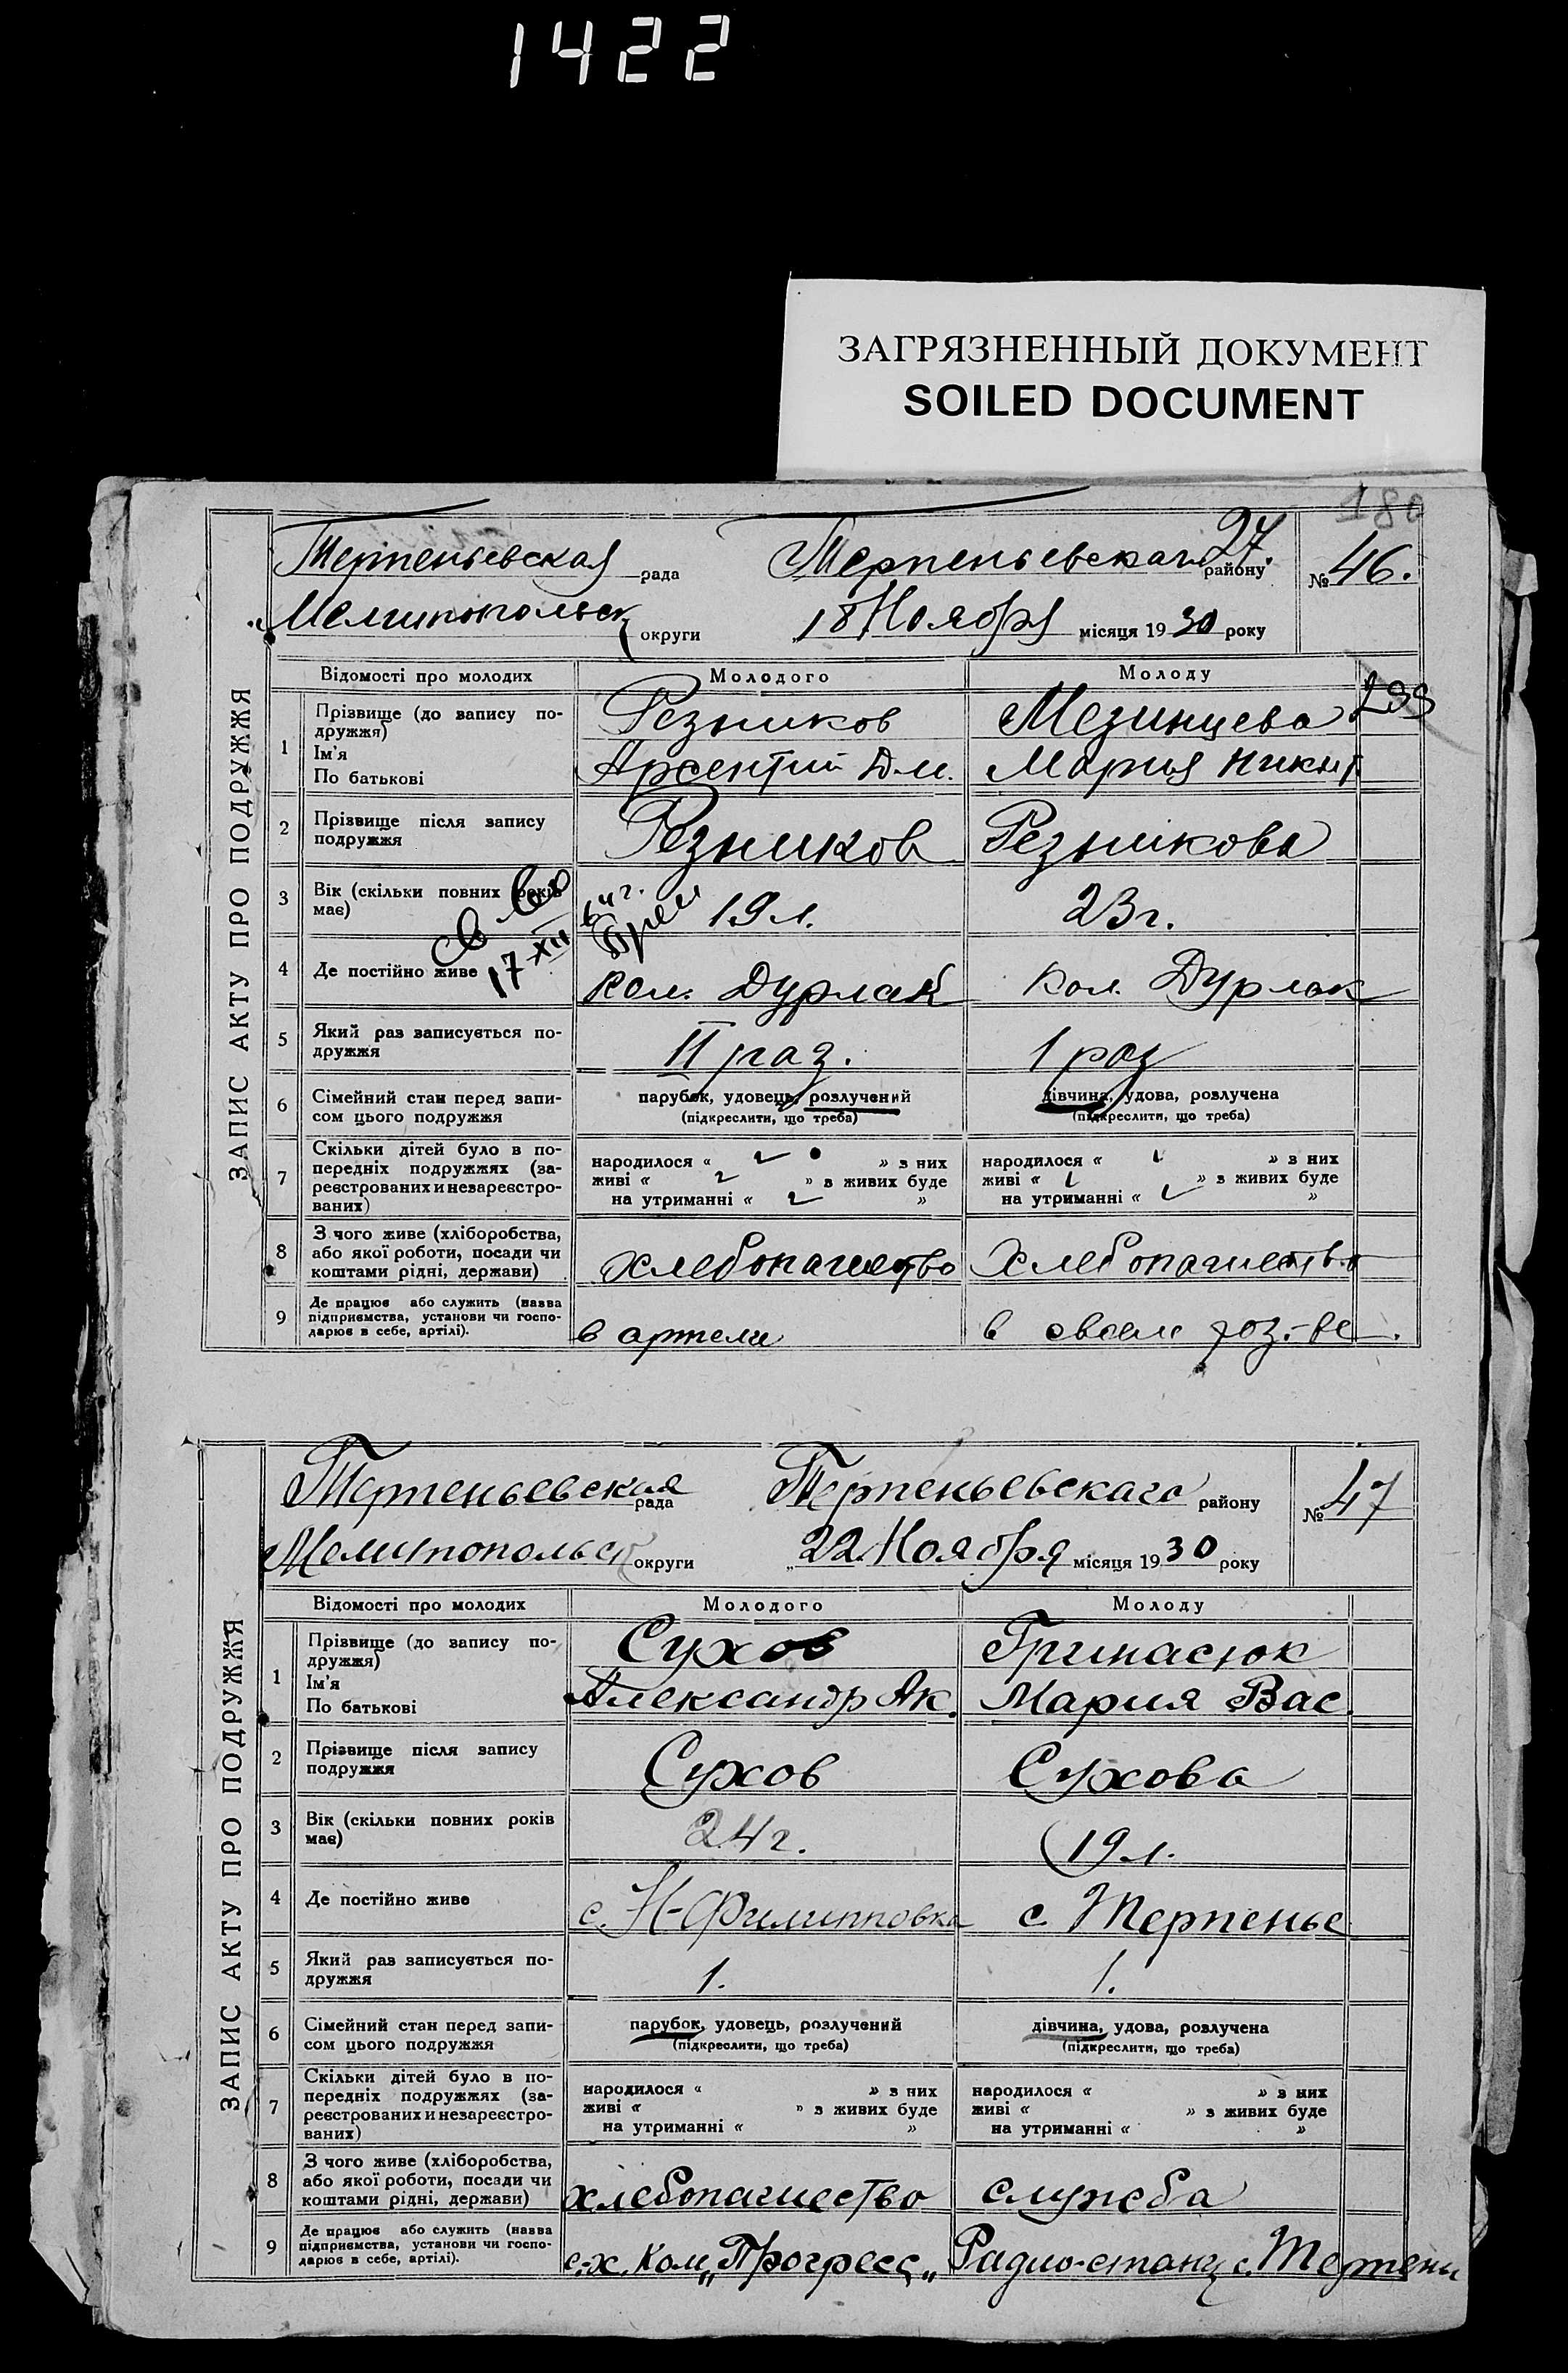 1422
ЗАГРЯЗНЕННЫЙ ДОКУМЕНТ
SOILED DOCUMENT
180
ЗАПИС АКТУ ПРО ПОДРУЖЖЯ
Терпеньевская рада Терпеньевскаго району 27. № 46.
Мелитопольск округи 18 Ноября місяця 1930 року
Відомості про молодих Молодого Молоду
1 Прізвище (до запису по-
дружжя) Резников Мезинцева
Ім'я
По батькові Арсентий Дм. Мария Никит.
2 Прізвище після запису
подружжя Резников Резникова
3 Вік (скільки повних років
має) 19 л. 23 г.
17 XII
4 Де постійно живе кол. Дурлак кол. Дурлак
5 Який раз записується по-
дружжя II раз. 1 раз
6 Сімейний стан перед запи-
сом цього подружжя
парубок, удовець, розлучений дівчина, удова, розлучена
(підкреслити, що треба) (підкреслити, що треба)
7 Скільки дітей було в по-
передніх подружжях (за-
реєстрованих и незареєстро-
ваних)
народилося « » з них народилося « » з них
живі « » з живих буде живі « » з живих буде
на утриманні « » на утриманні « »
8 З чого живе (хліборобства,
або якої роботи, посади чи
коштами рідні, держави) хлебопашество хлебопашество
9 Де працює або служить (назва
підприємства, установи чи госпо-
дарює в себе, артілі). в артели в своем хоз-ве.
ЗАПИС АКТУ ПРО ПОДРУЖЖЯ
Терпеньевская рада Терпеньевскаго району № 47
Мелитопольск округи „22 Ноября місяця 1930 року
Відомості про молодих Молодого Молоду
1 Прізвище (до запису по-
дружжя) Сухов Гринасюк
Ім'я
По батькові Александр Ак. Мария Вас.
2 Прізвище після запису
подружжя Сухов Сухова
3 Вік (скільки повних років
має) 24 г. 19 л.
4 Де постійно живе с. Н-Филипповка с. Терпенье
5 Який раз записується по-
дружжя 1. 1.
6 Сімейний стан перед запи-
сом цього подружжя
парубок, удовець, розлучений дівчина, удова, розлучена
(підкреслити, що треба) (підкреслити, що треба)
7 Скільки дітей було в по-
передніх подружжях (за-
реєстрованих и незареєстро-
ваних)
народилося « » з них народилося « » з них
живі « » з живих буде живі « » з живих буде
на утриманні « » на утриманні « »
8 З чого живе (хліборобства,
або якої роботи, посади чи
коштами рідні, держави) хлебопашество служба
9 Де працює або служить (назва
підприємства, установи чи госпо-
дарює в себе, артілі). с-х. Ком „Прогресс„ Радио-станц с. Терпени